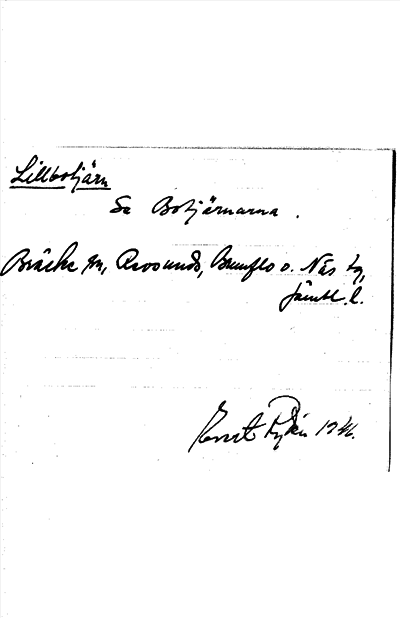 Lillbotjärn
Se Botjärnarna.
Bräcke sn, Revsunds, Brunflo o. Näs tg,
Jämtl. l.
Ernst Fyhn 1946.